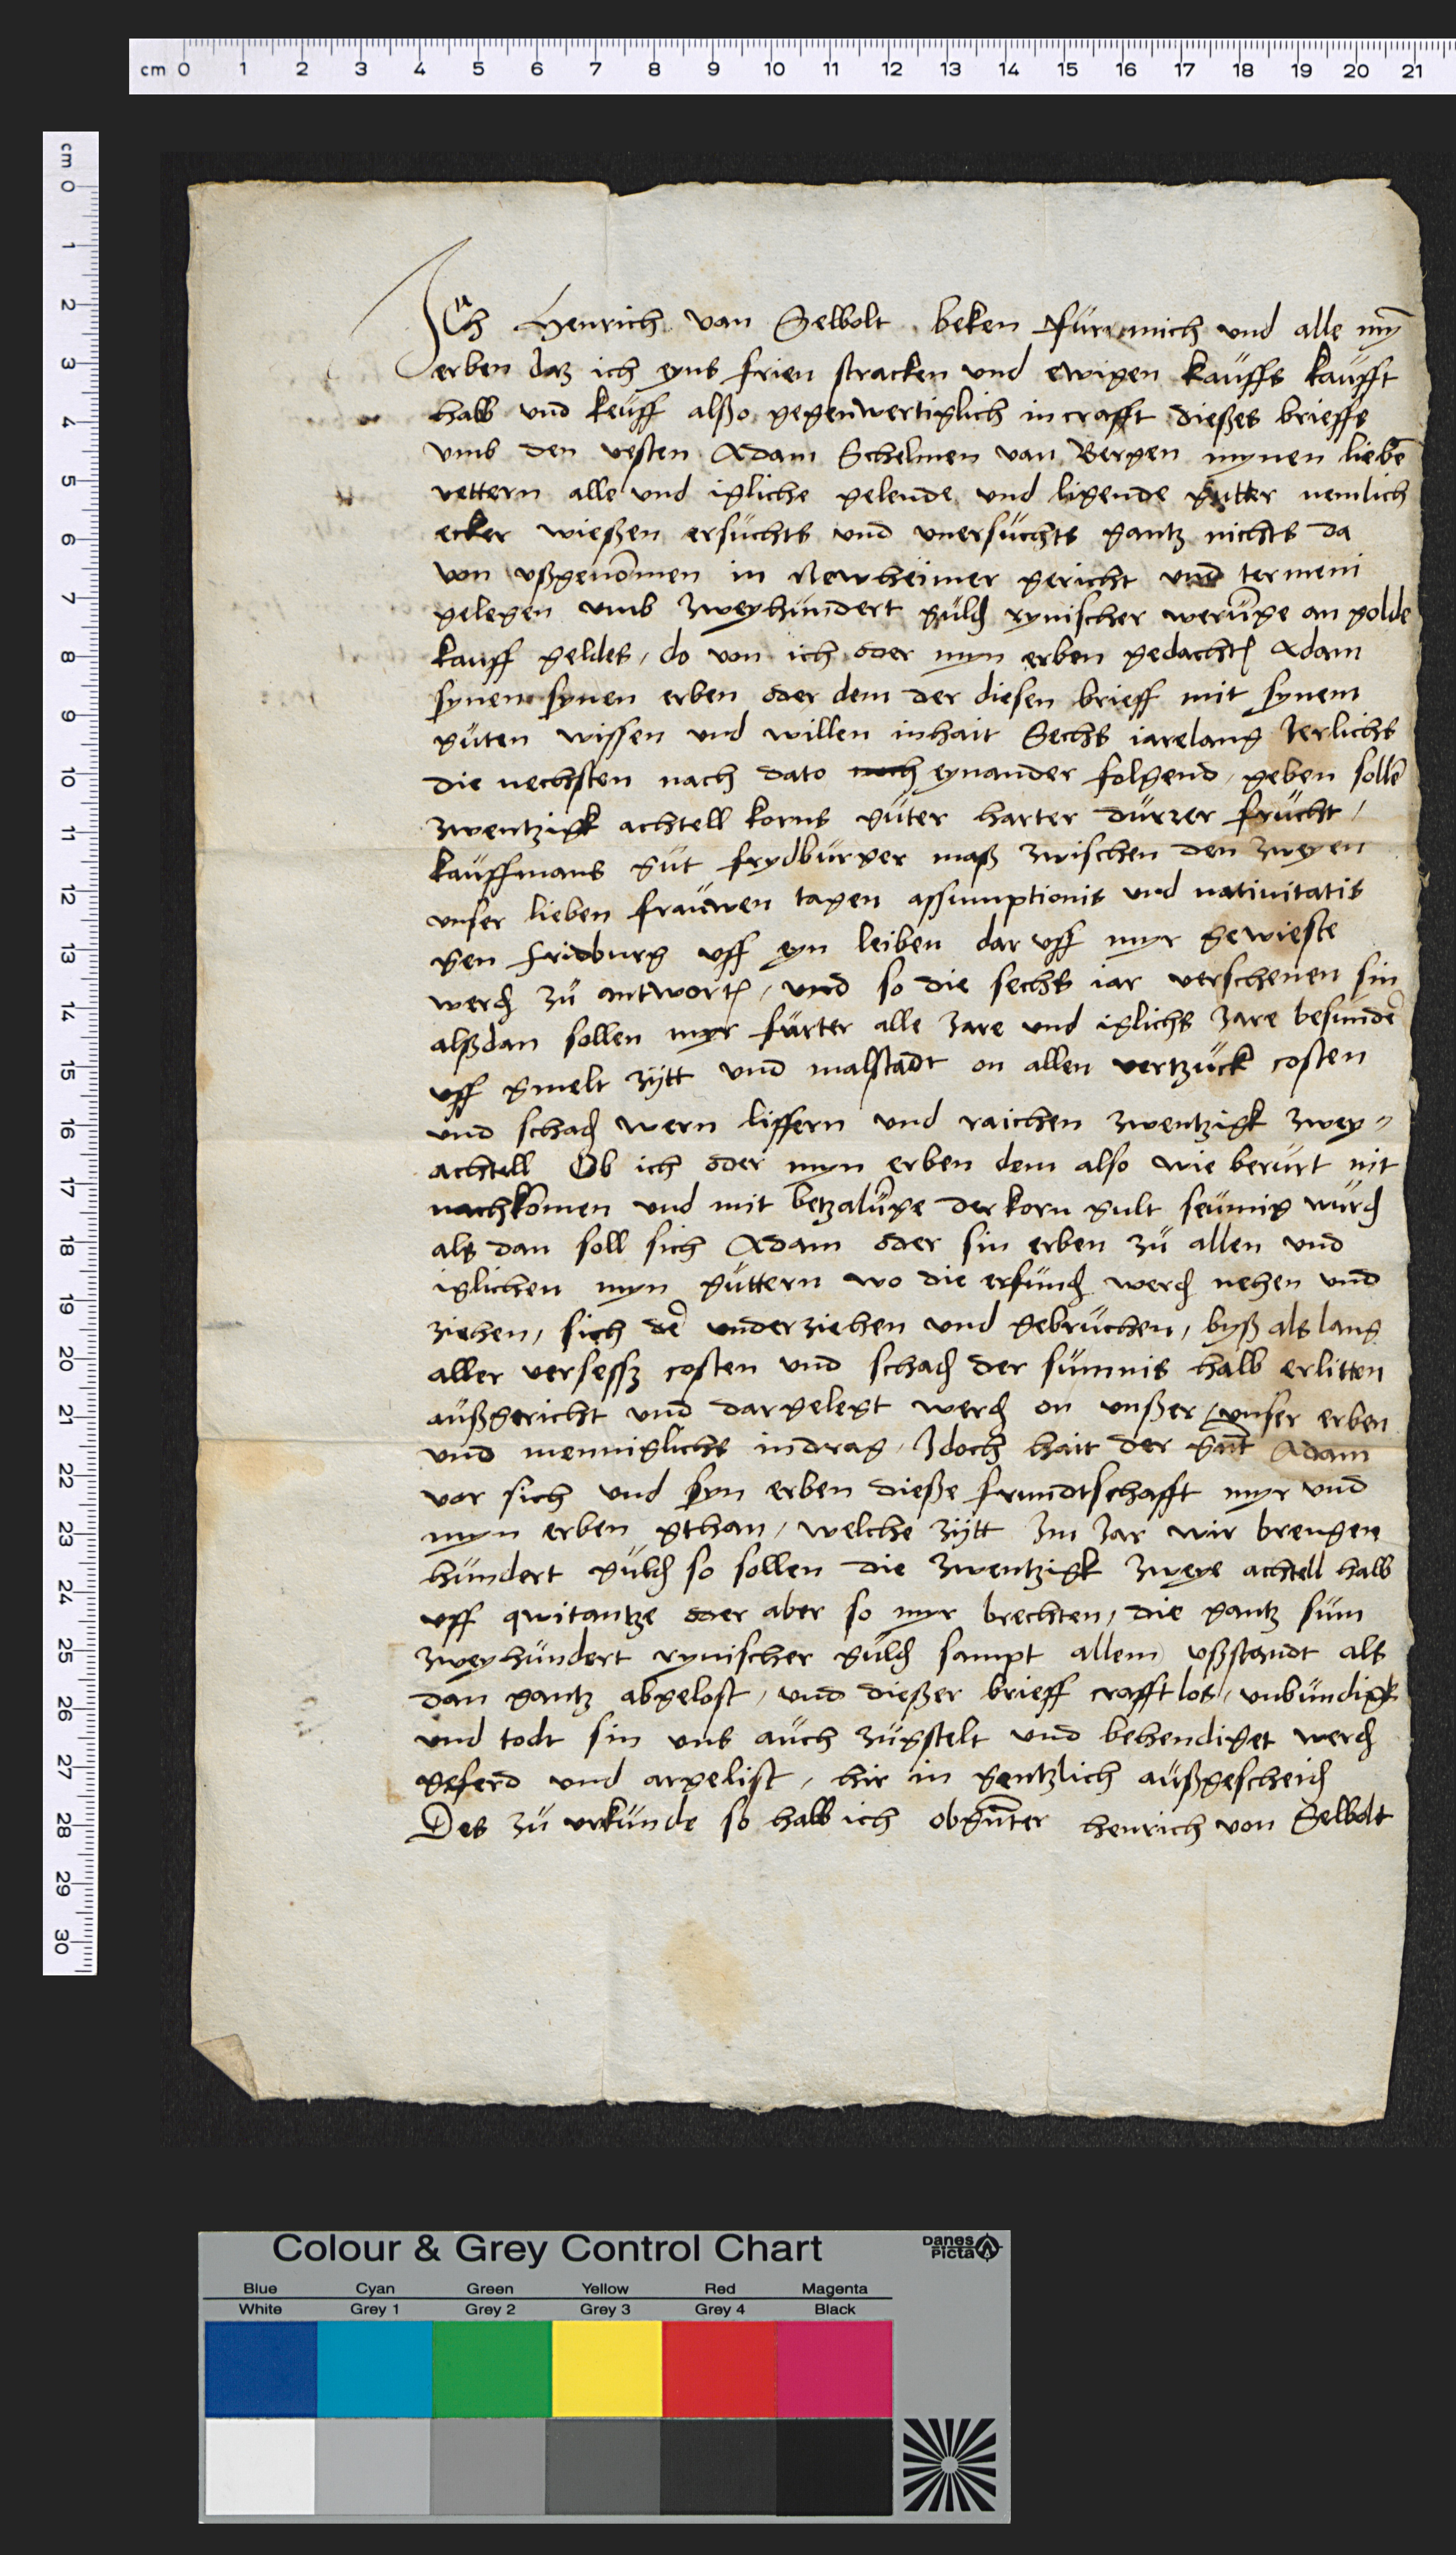 cm 0 1 2 3 4 5 6 7 8 9 10 11 12 13 14 15 16 17 18 19 20 21
cm 0 1 2 3 4 5 6 7 8 9 10 11 12 13 14 15 16 17 18 19 20 21 22 23 24 25 26 27 28 29 30
Ich Henrich van Selbolt beken für mich und alle myn̄
erben daz ich eyns frien stracken und ewigen kauffs kaufft
hab und keuff alßo gegenwertiglich in crafft dießes brieffs
umb den vesten Adam Schelmen van Bergen mynen liebē
vettern alle und igliche gelende und ligende gutter nemlich
ecker wießen ersuchts und unersuchts gantz nichts da
von ußgenōmen in Newheimer gericht und termeni
gelegen umb zweyhundert guld rynischer werūge an golde
kauff geldes, do von ich oder myn erben gedacht Adam
synen synen erben oder dem der diesen brieff mit synem
guten wissen und willen inhait Sechs iarelang Jerlichs
die nechsten nach dato noch eynander folgend, geben sollē
zwentzigk achtell korns guter harter durrer frucht,
kauffmans gut frydburger maß zwischen den zweyen
unser lieben frauwen tagen assumptionis und nativitatis
gen fridburg uff eyn leiben dar uff myr gewieste
werd zu antwort, und so die sechs iar verschenen sin
alßdan sollen myr furter alle Jare und iglichs Jare besundē
uff gmelt zytt und malstadt on allen vertzuck costen
und schad wern liffern und raichen zwentzigk zwey-
achtell Ob ich oder myn erben dem also wie berurt nit
nachkōmen und mit betzalūge der korn gult seumig wurd
als dan soll sich Adam oder sin erben zu allen und
iglichen myn guttern wo die erfund werd nehen und
ziehen, sich dē underziehen und gebruchen, byß als lang
aller versessz costen und schad der sumnis halb erlitten
außgericht und dargelegt werd on unßer unser erben
und menniglichs indrag, Jdoch hait der gn̄t Adam
vor sich und syn erben dieße frundtschafft myr und
myn erben gthan, welche zytt Jm Jar wir brengen
hundert guld so sollen die zwentzigk zweye achtell halb
uff qwitantze oder aber so myr brechten, die gantz sum
zweyhundert rynischer guld sampt allem ußstandt als
dan gantz abgelost, und dießer brieff crafftlos, unbundigk
und todt sin uns auch zugstelt und behendiget werd
geferd und argelist, hir in gentzlich außgescheid
Des zu urkunde so hab ich obgn̄ter henrich von Selbolt
Colour & Grey Control Chart
Danes Picta
Blue Cyan Green Yellow Red Magenta
White Grey 1 Grey 2 Grey 3 Grey 4 Black